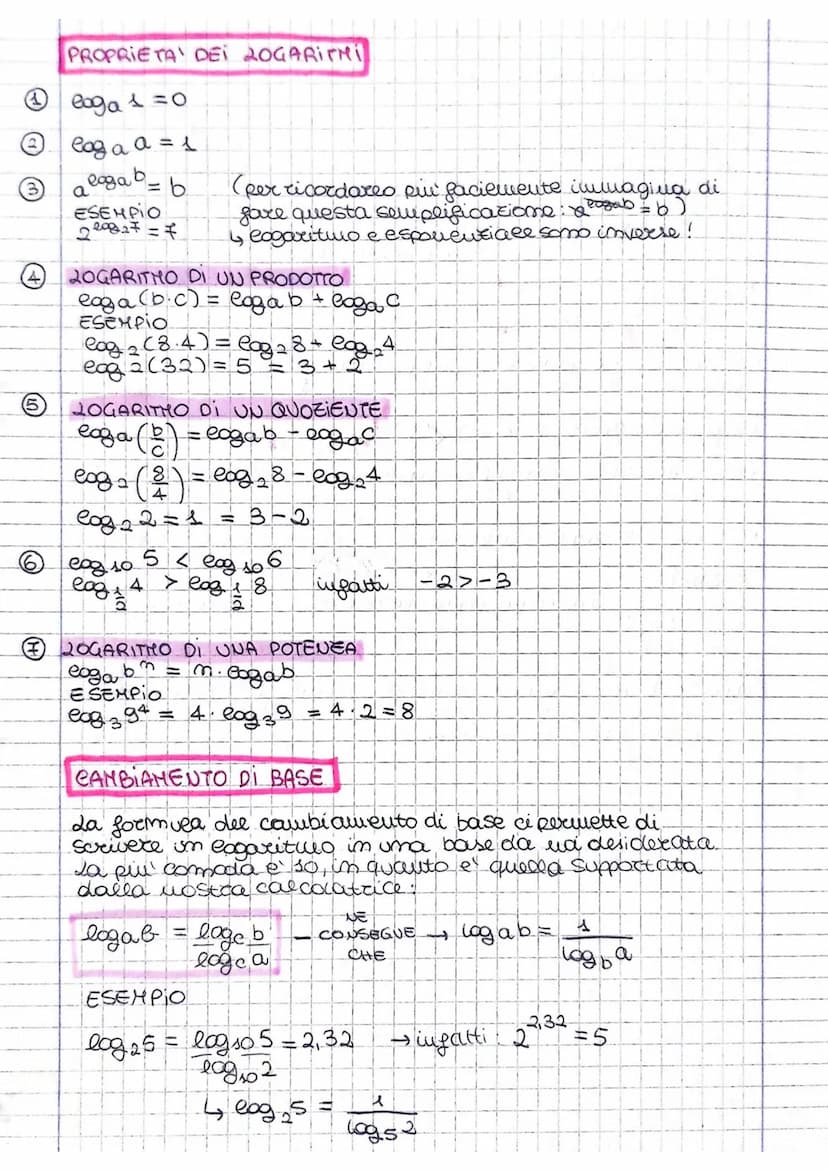 PROPRIETA' DEI LOGARITMI
① log_a 1 = 0
② log_a a = 1
③ a^(log_a b) = b (per ricordarlo più facilmente immagina di
ESEMPIO fare questa semplificazione: a^(log_a b) = b)
2^(log_2 7) = 7 ↳ logaritmo e esponenziale sono inverse!
④ LOGARITMO DI UN PRODOTTO
log_a (b·c) = log_a b + log_a c
ESEMPIO
log_2 (8·4) = log_2 8 + log_2 4
log_2 (32) = 5 = 3 + 2
⑤ LOGARITMO DI UN QUOZIENTE
log_a (b/c) = log_a b - log_a c
log_2 (8/4) = log_2 8 - log_2 4
log_2 2 = 1 = 3 - 2
⑥ log_10 5 < log_10 6
log_1/2 4 > log_1/2 8 infatti -2 > -3
⑦ LOGARITMO DI UNA POTENZA
log_a b^n = n · log_a b
ESEMPIO
log_3 9^4 = 4 · log_3 9 = 4 · 2 = 8
CAMBIAMENTO DI BASE
La formula del cambiamento di base ci permette di
scrivere un logaritmo in una base da noi desiderata.
La più comoda è 10, in quanto è quella supportata
dalla nostra calcolatrice:
log_a b = log_c b / log_c a — NE CONSEGUE CHE → log_a b = 1 / log_b a
ESEMPIO
log_2 5 = log_10 5 / log_10 2 = 2,32 → infatti: 2^2,32 = 5
↳ log_2 5 = 1 / log_5 2